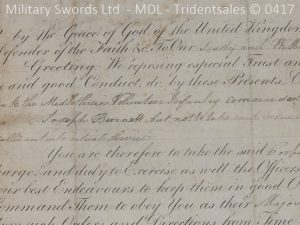 Military Swords Ltd - MDL - Tridentsales © 0417
by the Grace of God, of the United Kingdom
Defender of the Faith &c. To Our Trusty and
Greeting. We reposing especial Trust an
and good Conduct, do, by these Presents,
to the Volunteer Infantry commanded
Joseph but not to take rank
You are therefore to take the said
arge, and duty to Exercise as well the Officers
our best Endeavours to keep them in good O
Command Them to obey You as their Major
Orders and Directions from Time